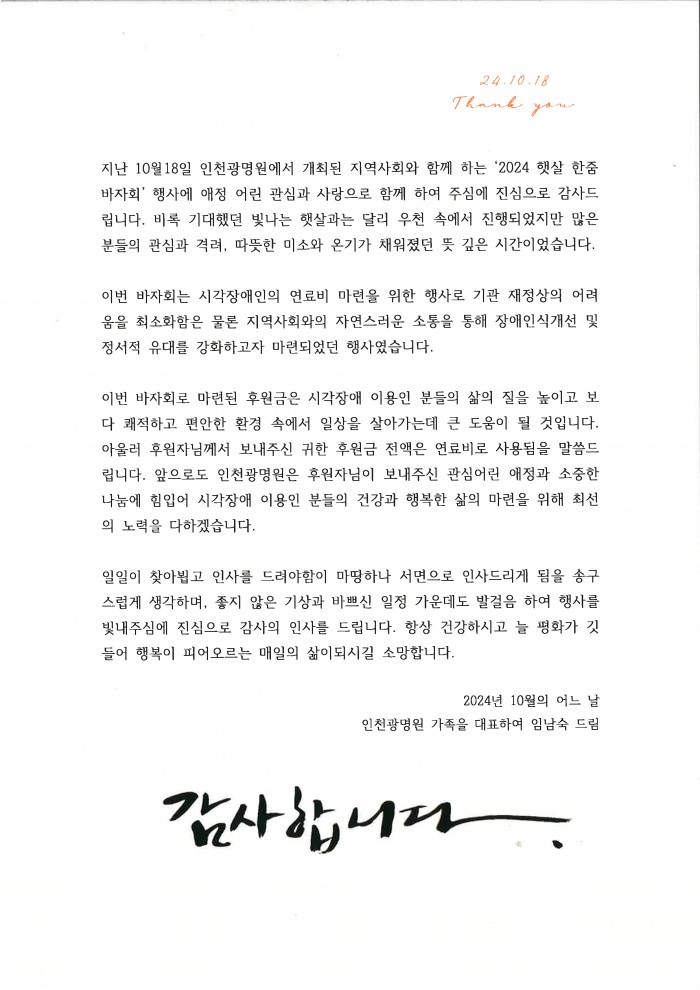 24.10.18
Thank you
지난 10월18일 인천광명원에서 개최된 지역사회와 함께 하는 ‘2024 햇살 한줌
바자회’ 행사에 애정 어린 관심과 사랑으로 함께 하여 주심에 진심으로 감사드
립니다. 비록 기대했던 빛나는 햇살과는 달리 우천 속에서 진행되었지만 많은
분들의 관심과 격려, 따뜻한 미소와 온기가 채워졌던 뜻 깊은 시간이었습니다.
이번 바자회는 시각장애인의 연료비 마련을 위한 행사로 기관 재정상의 어려
움을 최소화함은 물론 지역사회와의 자연스러운 소통을 통해 장애인식개선 및
정서적 유대를 강화하고자 마련되었던 행사였습니다.
이번 바자회로 마련된 후원금은 시각장애 이용인 분들의 삶의 질을 높이고 보
다 쾌적하고 편안한 환경 속에서 일상을 살아가는데 큰 도움이 될 것입니다.
아울러 후원자님께서 보내주신 귀한 후원금 전액은 연료비로 사용됨을 말씀드
립니다. 앞으로도 인천광명원은 후원자님이 보내주신 관심어린 애정과 소중한
나눔에 힘입어 시각장애 이용인 분들의 건강과 행복한 삶의 마련을 위해 최선
의 노력을 다하겠습니다.
일일이 찾아뵙고 인사를 드려야함이 마땅하나 서면으로 인사드리게 됨을 송구
스럽게 생각하며, 좋지 않은 기상과 바쁘신 일정 가운데도 발걸음 하여 행사를
빛내주심에 진심으로 감사의 인사를 드립니다. 항상 건강하시고 늘 평화가 깃
들어 행복이 피어오르는 매일의 삶이되시길 소망합니다.
2024년 10월의 어느 날
인천광명원 가족을 대표하여 임남숙 드림
감사합니다.